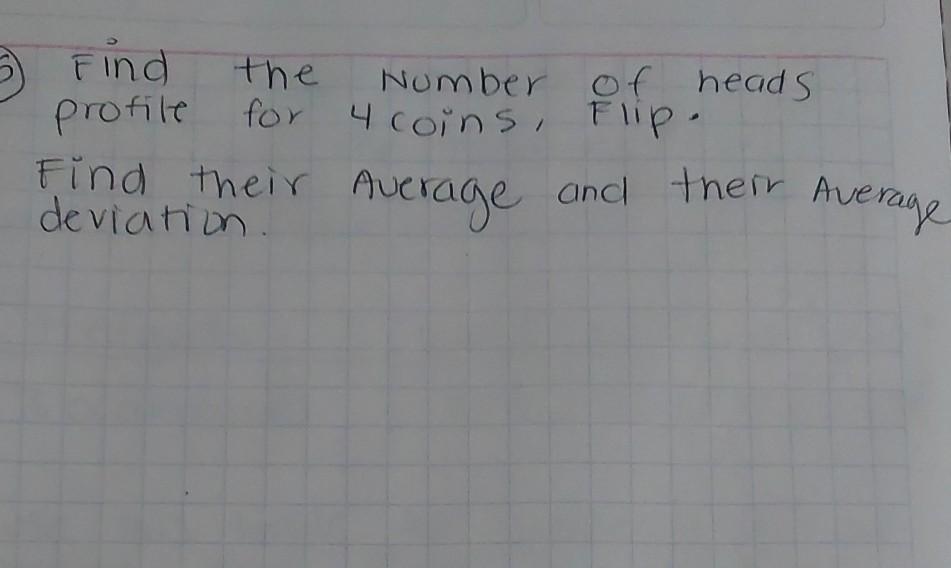 5) Find the Number of heads
profile for 4 coins, Flip.
Find their Average and their Average
deviation.